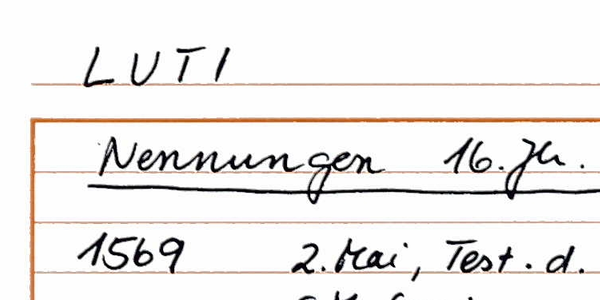 LUTI
Nennungen 16. Jh.
1569 2. Mai, Test. d.